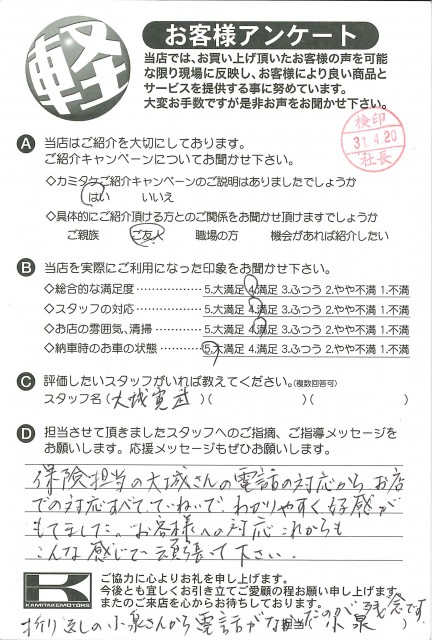 軽
お客様アンケート
当店では、お買い上げ頂いたお客様の声を可能
な限り現場に反映し、お客様により良い商品と
サービスを提供する事に努めています。
大変お手数ですが是非お声をお聞かせ下さい。
検印
31.4.20
社長
A 当店はご紹介を大切にしております。
ご紹介キャンペーンについてお聞かせ下さい。
◇カミタケご紹介キャンペーンのご説明はありましたでしょうか
はい いいえ
◇具体的にご紹介頂ける方とのご関係をお聞かせ頂けますでしょうか
ご親族 ご友人 職場の方 機会があれば紹介したい
B 当店を実際にご利用になった印象をお聞かせ下さい。
◇総合的な満足度……………5.大満足 4.満足 3.ふつう 2.やや不満 1.不満
◇スタッフの対応……………5.大満足 4.満足 3.ふつう 2.やや不満 1.不満
◇お店の雰囲気、清掃………5.大満足 4.満足 3.ふつう 2.やや不満 1.不満
◇納車時のお車の状態………5.大満足 4.満足 3.ふつう 2.やや不満 1.不満
C 評価したいスタッフがいれば教えてください。(複数回答可)
スタッフ名(大城寛武)( )( )
D 担当させて頂きましたスタッフへのご指摘、ご指導メッセージを
お願いします。応援メッセージもぜひお願いします。
保険担当の大城さんの電話の対応から お店
での対応すべて、ていねいで、わかりやすく好感が
もてました。お客様への対応 これからも
こんな感じで頑張って下さい。
K
KAMITAKEMOTORS
ご協力に心よりお礼を申し上げます。
今後とも宜しくお引き立てご愛顧の程お願い申し上げます。
またのご来店を心からお待ちしております。
折り返しの小泉さんから電話がなかったのが残念です
担当 小泉 )